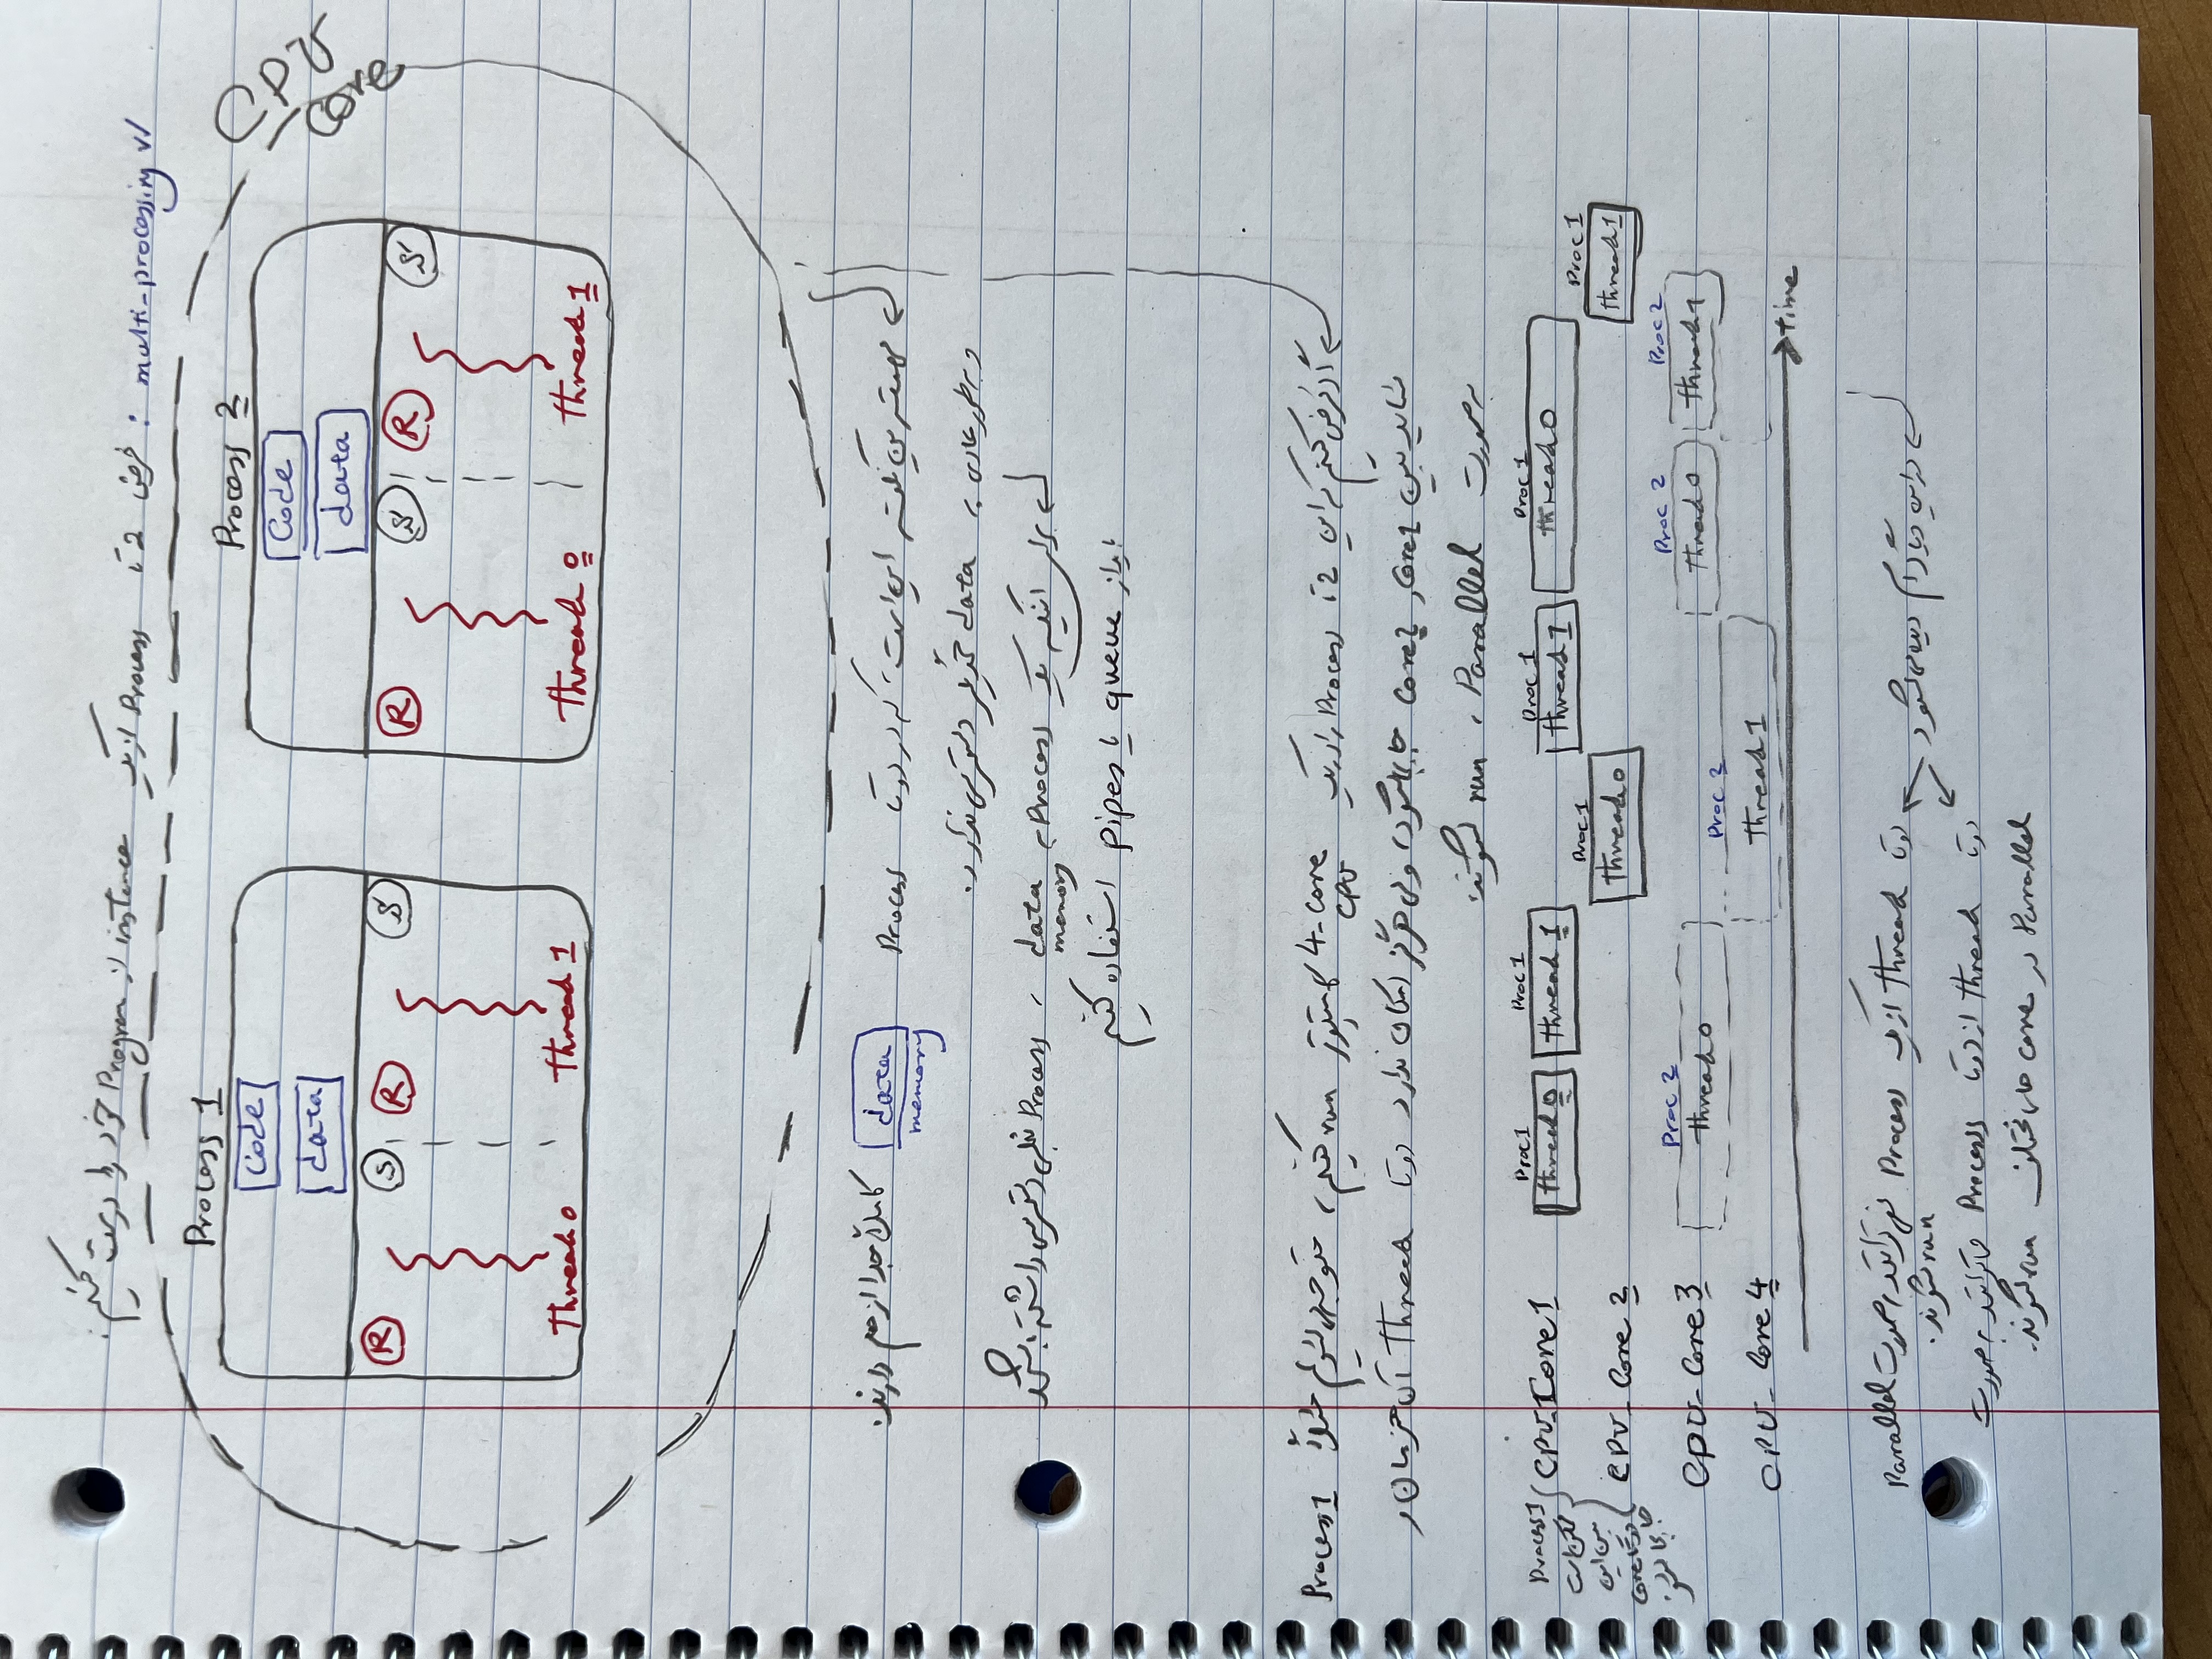 ✓ multi-processing : فرض 2 تا Process از یک instance از Program خود را درست کنیم:
CPU
Core
Process 1
Code
data
R S R S
Thread 0 Thread 1
Process 2
Code
data
R S R S
Thread 0 Thread 1
مهمترین نکته این است که در دوتا Process data کاملاً جدا از هم دارند.
memory
و به طور عادی به data همدیگر دسترسی ندارد.
برای اینکه یک Process به data Process قبلی دسترسی داشته باشد
memory
باید از queue یا pipes استفاده کنیم
اگر فرض کنیم که این 2 تا Process را در یک 4-core کامپیوتر run کنیم، متوجه می‌شویم مثلاً Process 1
CPU
شاید بین Core1 و Core2 جابجا شود، ولی هرگز امکان ندارد دوتا Thread آن همزمان و
به صورت Parallel، run بشوند.
Process 1
ممکن است
بین این
دوتا Core
جابجا بشود
CPU-Core 1
Proc 1 Proc 1 Proc 1 Proc 1
Thread 0 Thread 1 Thread 1 Thread 0
CPU-Core 2
Proc 1 Proc 1
Thread 0 Thread 1
CPU-Core 3
Proc 2 Proc 2 Proc 2
Thread 0 Thread 0 Thread 1
CPU-Core 4
Proc 2
Thread 1
Time
در این دیاگرام دیده می‌شود
دوتا Thread از یک Process نمی‌توانند به صورت Parallel
run بشوند.
دوتا Thread از دوتا Process می‌توانند به صورت
Parallel در core های مختلف run بشوند.